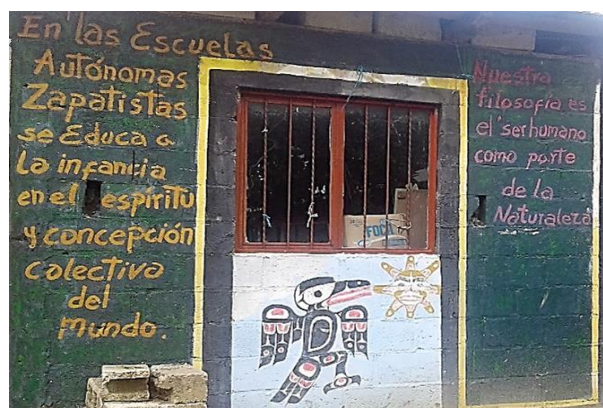 En las Escuelas
Autónomas
Zapatistas
se Educa a
la infancia
en el espíritu
y concepción
colectiva
del
mundo.
Nuestra
filosofía es
el ser humano
como parte
de la
Naturaleza
FOCA